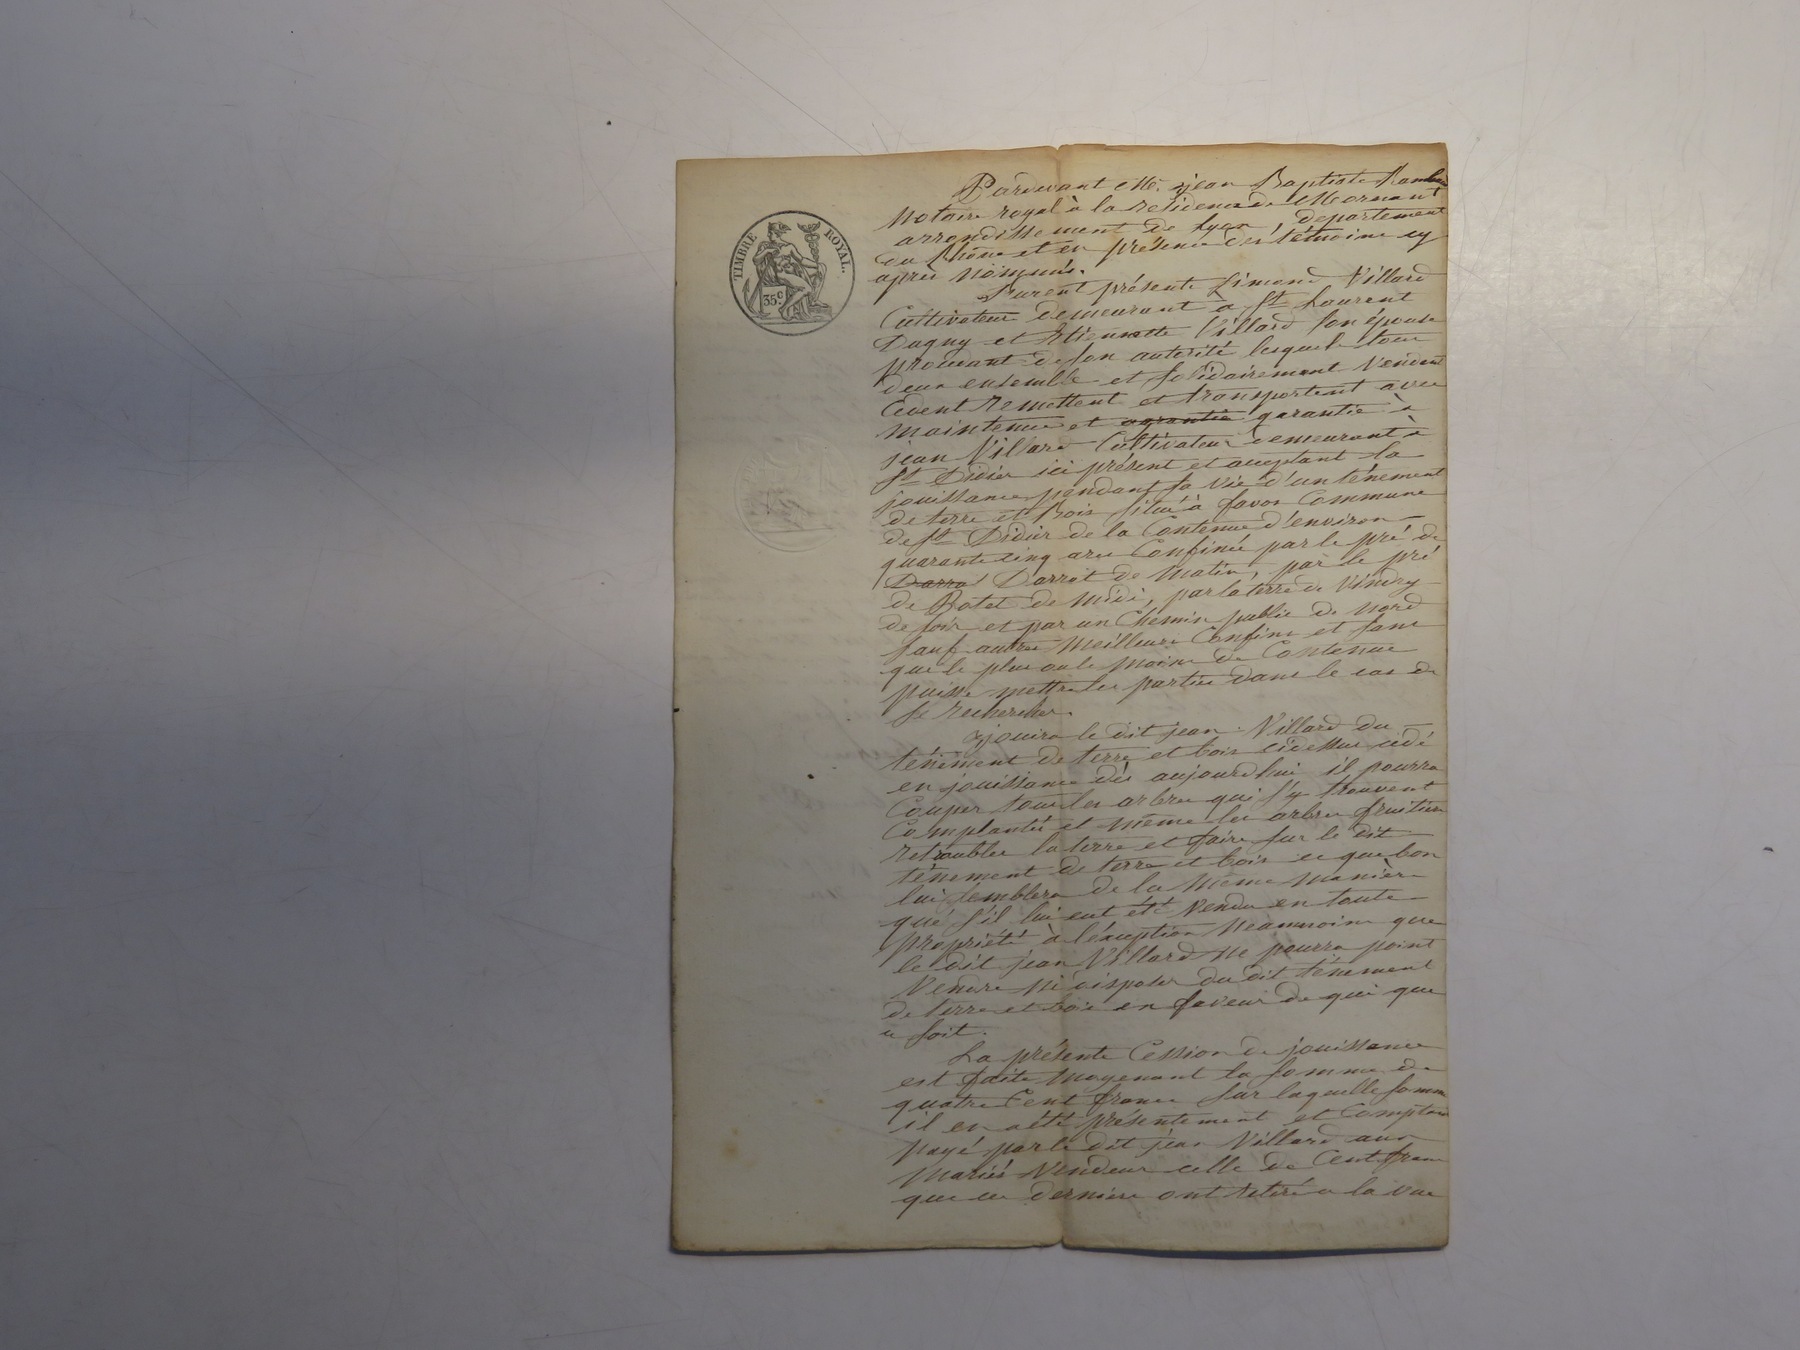 TIMBRE ROYAL.
35c
Pardevant Me. jean Baptiste
Notaire royal à la residence de Mornant
arrondissement de Lyon département
du Rhône et en présence des témoins cy
après Nommés.
Furent présents Simond Villard
Cultivateur demeurant à St Laurent
Dagny et Etiennette Villard son épouse
procedant de son autorité lesquels tous
deux ensemble et solidairement Vendent
Cedent remettent et transportent avec
maintenue et garantie à
jean Villard Cultivateur demeurant à
St Didier ici présent et acceptant la
jouissance pendant sa vie d'un ténement
de terre et Bois situé à favor Commune
de St Didier de la Contenue d'environ
quarante cinq ares Confinée par le pré de
Darra Darrot de Matin, par le pré
de Botet de Midi, par la terre de Vindry
de soir et par un Chemin public de Nord
sauf autres Meilleurs Confins et sans
que le plus ou le Moins de Contenue
puisse mettre les parties dans le cas de
se rechercher.
jouira le dit jean Villard du
ténement de terre et bois cidessus cédé
en jouissance dès aujourdhui il pourra
Couper tous les arbres qui s'y trouvent
Complantés et même les arbres fruitiers
retroubler la terre et faire sur le dit
ténement de terre et bois ce que bon
lui semblera de la même manière
que s'il lui eut été Vendu en toute
propriété à l'éxception Néammoins que
le dit jean Villard Ne pourra point
Vendre Ni disposer du dit ténement
de terre et bois en faveur de qui que
ce soit.
La présente Cession de jouissance
est faite Moyenant la somme de
quatre Cent francs sur laquelle somme
il en a été présentement et Comptant
payé par le dit jean Villard aux
Mariés Vendeurs celle de Cent francs
que ces derniers ont retiré a la vue